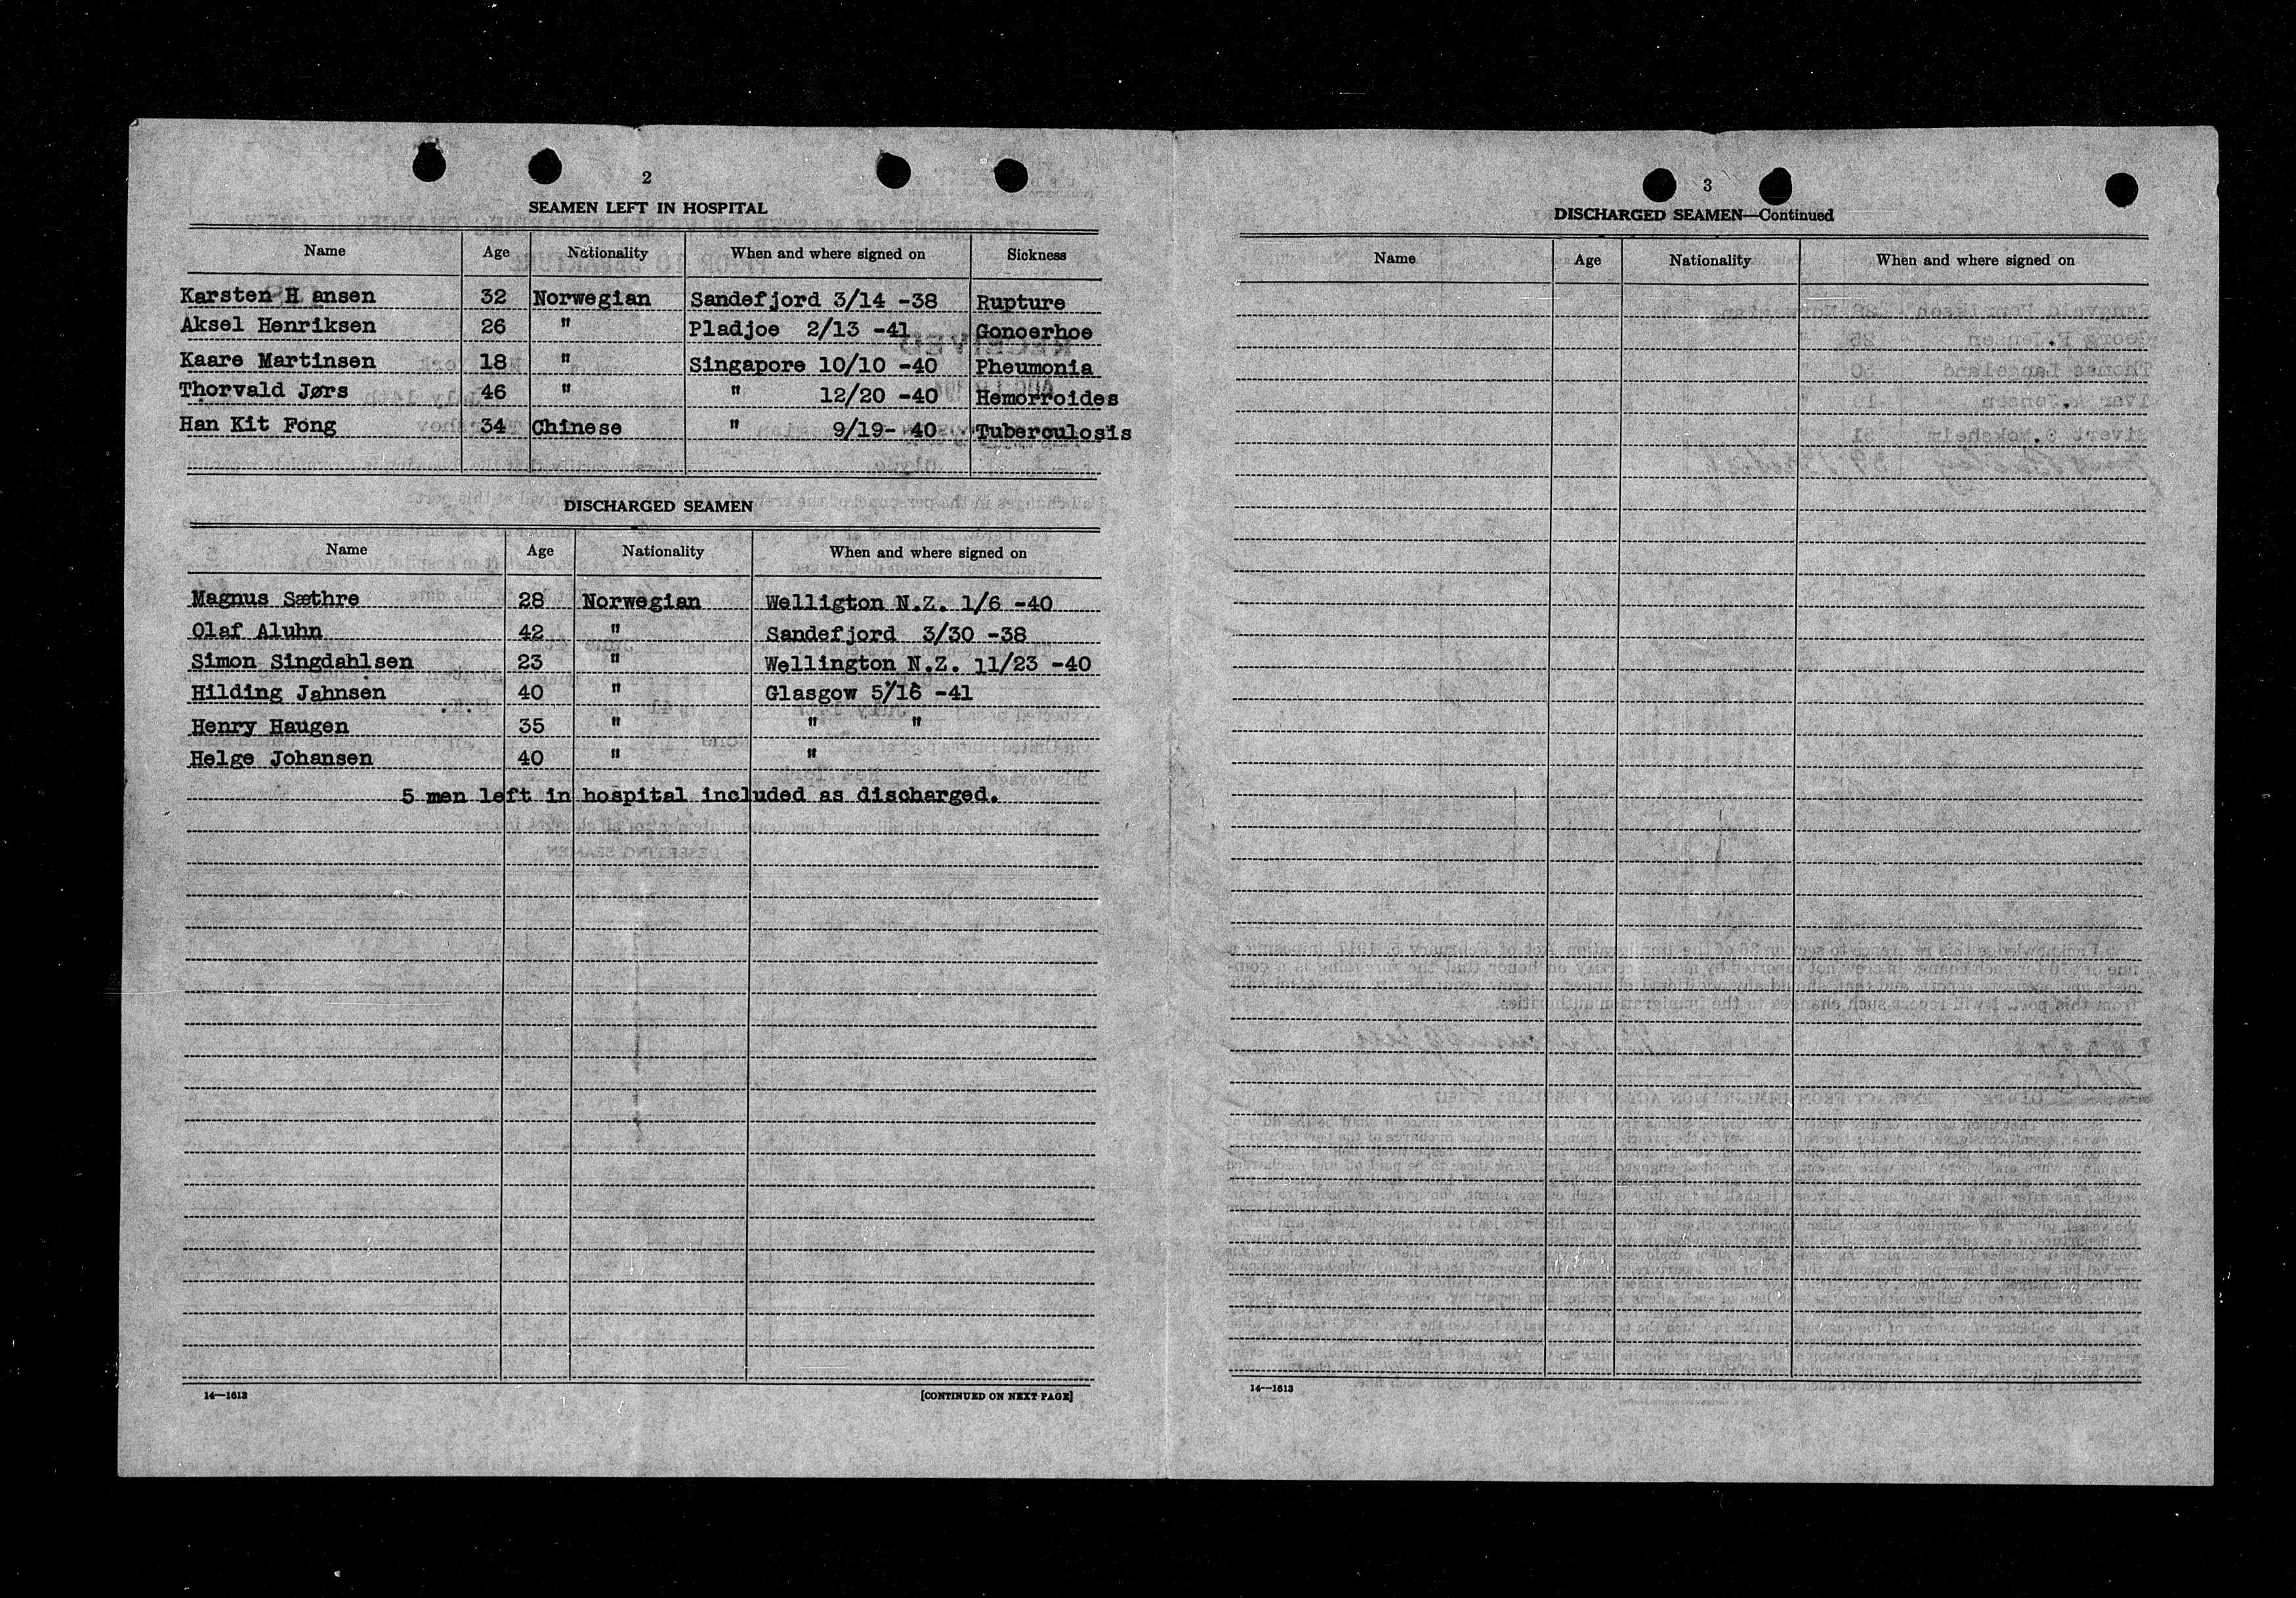 2
SEAMEN LEFT IN HOSPITAL
Name Age Nationality When and where signed on Sickness
Karsten H ansen 32 Norwegian Sandefjord 3/14 -38 Rupture
Aksel Henriksen 26 " Pladjoe 2/13 -41 Gonoerhoe
Kaare Martinsen 18 " Singapore 10/10 -40 Pheumonia
Thorvald Jørs 46 " " 12/20 -40 Hemorroides
Han Kit Fong 34 Chinese " 9/19- 40 Tuberculosis
DISCHARGED SEAMEN
Name Age Nationality When and where signed on
Magnus Sæthre 28 Norwegian Welligton N.Z. 1/6 -40
Olaf Aluhn 42 " Sandefjord 3/30 -38
Simon Singdahlsen 23 " Wellington N.Z. 11/23 -40
Hilding Jahnsen 40 " Glasgow 5/16 -41
Henry Haugen 35 " " "
Helge Johansen 40 " "
5 men left in hospital included as discharged.
14—1613 [CONTINUED ON NEXT PAGE]
3
DISCHARGED SEAMEN—Continued
Name Age Nationality When and where signed on
14—1613